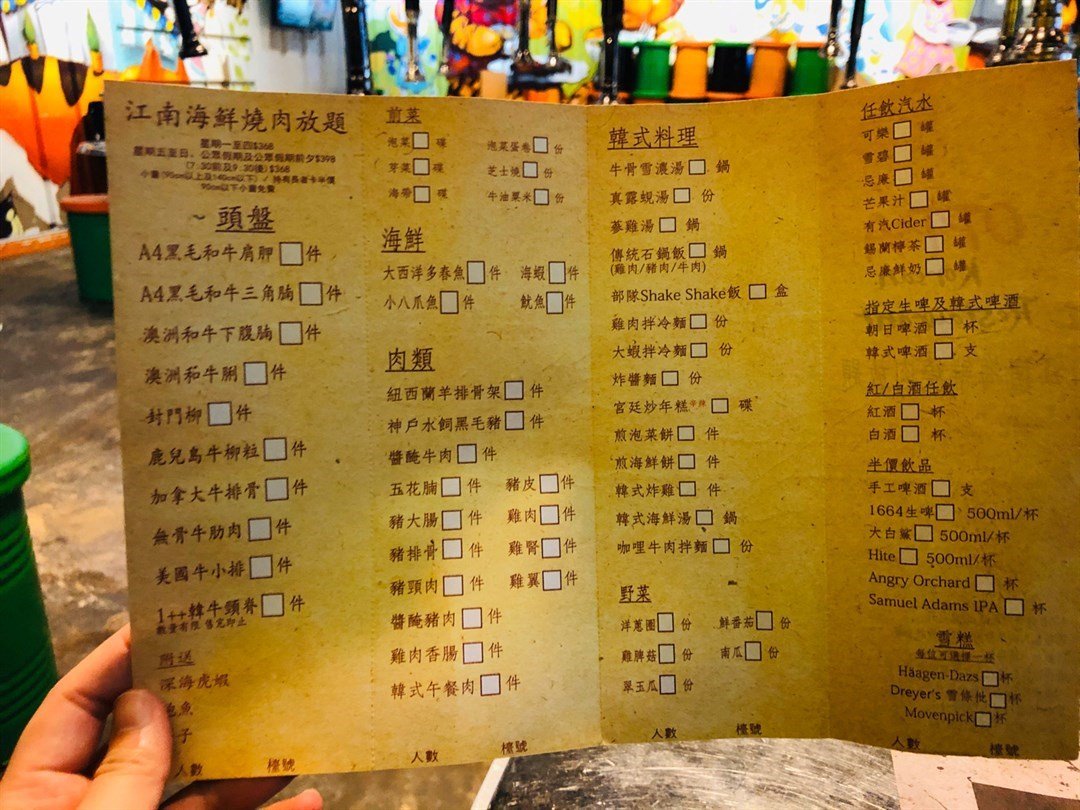 江南海鮮燒肉放題
星期一至四$368
星期五至日，公眾假期及公眾假期前夕$398
(7:30前及9:30後)$368
小童(90cm以上及140cm以下) / 持有長者卡半價
90cm以下小童免費
~ 頭盤
A4黑毛和牛肩胛 件
A4黑毛和牛三角腩 件
澳洲和牛下腹腩 件
澳洲和牛脷 件
封門柳 件
鹿兒島牛柳粒 件
加拿大牛排骨 件
無骨牛肋肉 件
美國牛小排 件
1++韓牛頸脊 件
數量有限 售完即止
附送
深海虎蝦
鮑魚
子
人數 檯號
前菜
泡菜 碟 泡菜蛋卷 份
芽菜 碟 芝士燒 份
海帶 碟 牛油粟米 份
海鮮
大西洋多春魚 件 海蝦 件
小八爪魚 件 魷魚 件
肉類
紐西蘭羊排骨架 件
神戶水飼黑毛豬 件
醬醃牛肉 件
五花腩 件 豬皮 件
豬大腸 件 雞肉 件
豬排骨 件 雞腎 件
豬頸肉 件 雞翼 件
醬醃豬肉 件
雞肉香腸 件
韓式午餐肉 件
人數 檯號
韓式料理
牛骨雪濃湯 鍋
真露蜆湯 份
蔘雞湯 鍋
傳統石鍋飯 鍋
(雞肉/豬肉/牛肉)
部隊Shake Shake飯 盒
雞肉拌冷麵 份
大蝦拌冷麵 份
炸醬麵 份
宮廷炒年糕 碟
煎泡菜餅 件
煎海鮮餅 件
韓式炸雞 件
韓式海鮮湯 鍋
咖哩牛肉拌麵 份
野菜
洋蔥圈 份 鮮番茄 份
雞脾菇 份 南瓜 份
翠玉瓜 份
人數 檯號
任飲汽水
可樂 罐
雪碧 罐
忌廉 罐
芒果汁 罐
有汽Cider 罐
錫蘭檸茶 罐
忌廉鮮奶 罐
指定生啤及韓式啤酒
朝日啤酒 杯
韓式啤酒 支
紅/白酒任飲
紅酒 杯
白酒 杯
半價飲品
手工啤酒 支
1664生啤 500ml/杯
大白鯊 500ml/杯
Hite 500ml/杯
Angry Orchard 杯
Samuel Adams IPA 杯
雪糕
每位可選擇一杯
Häagen-Dazs 杯
Dreyer's 雪條批 杯
Movenpick 杯
人數 檯號